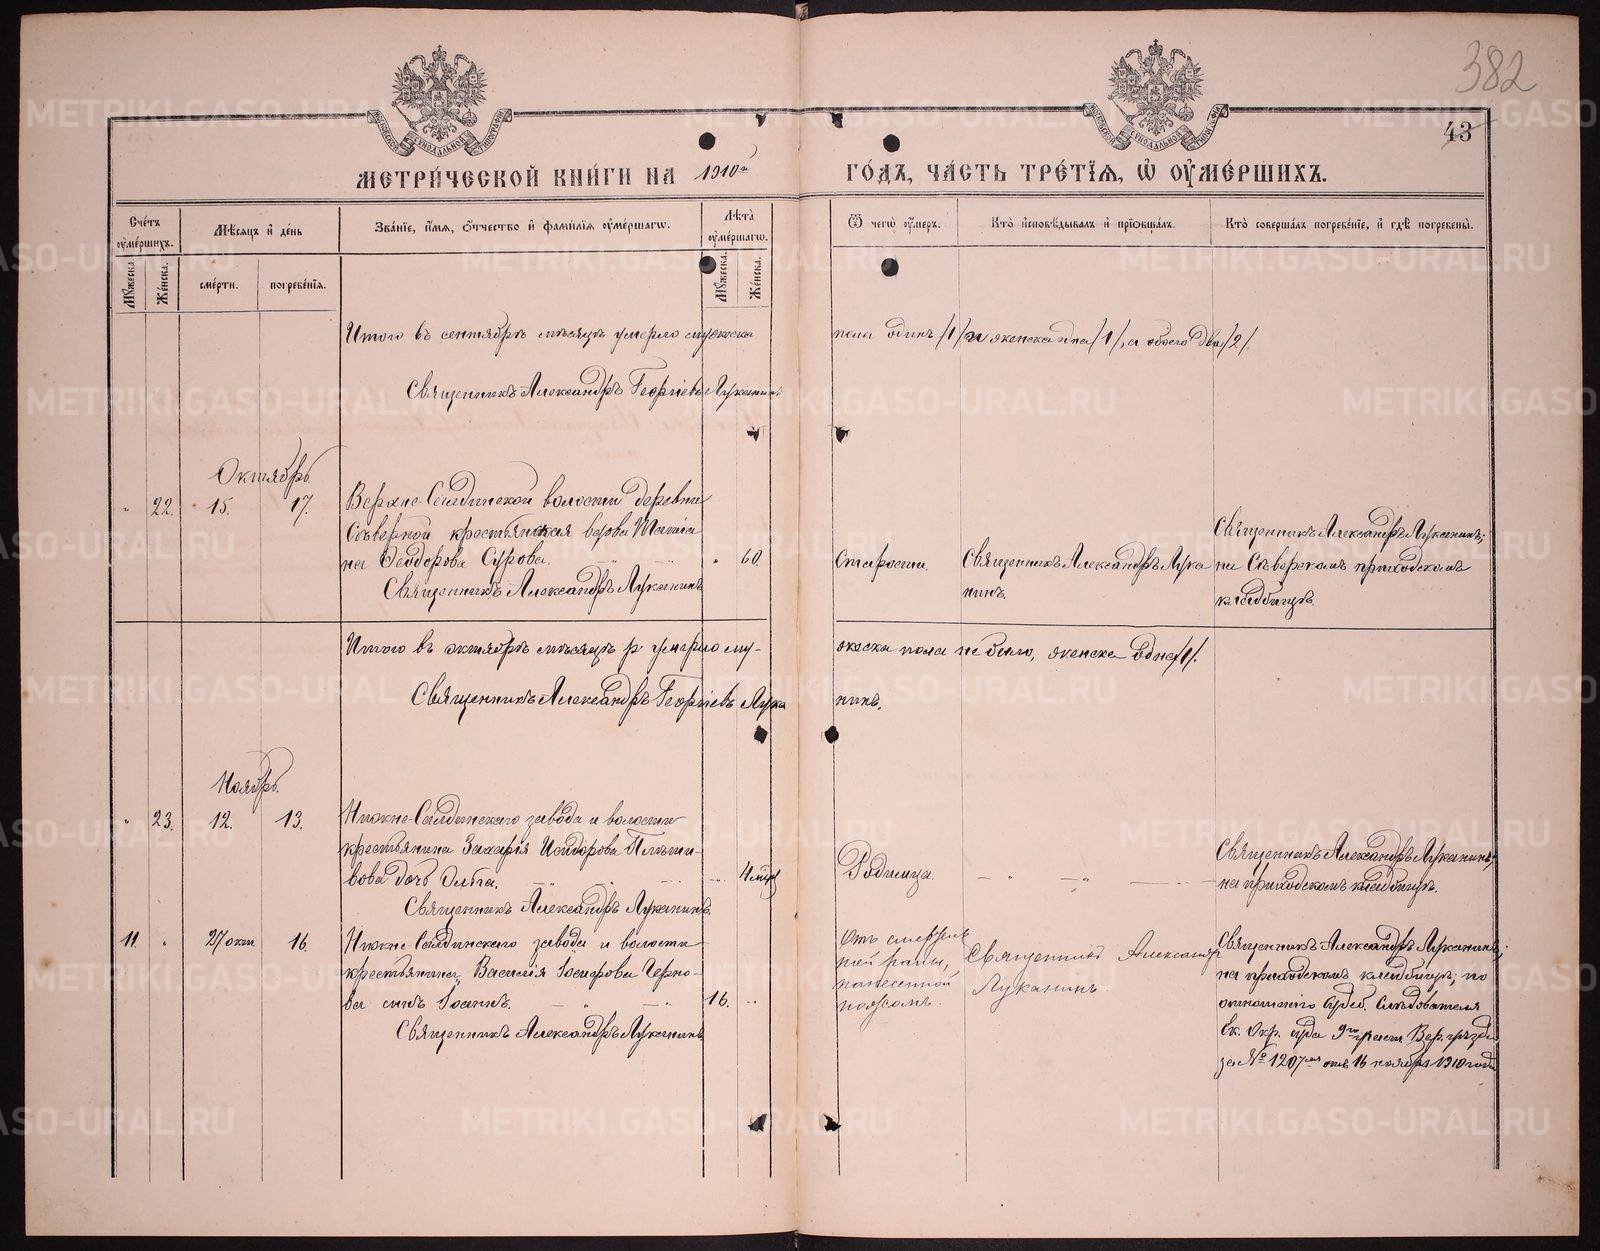 382
43
МЕТРИ́ЧЕСКОЙ КНИ́ГИ НА 1910й
ГО́ДЪ, ЧА́СТЬ ТРЕ́ТЇѦ, Ѡ҆ ОУ҆МЕ́РШИХЪ.
Сче́тъ оу҆ме́ршихъ.
Мѣ́сѧцъ и҆ де́нь
Зва́нїе, и҆́мѧ, ѻ҆́тчество и҆ фами́лїѧ оу҆ме́ршагѡ.
Лѣ́та оу҆ме́ршагѡ.
Ѿ чегѡ̀ оу҆́меръ.
Кто̀ и҆сповѣ́дывалъ и҆ прїѡбща́лъ.
Кто̀ соверша́лъ погребе́нїе, и҆ гдѣ̀ погребены̀.
Мꙋ́жеска.
Же́нска.
сме́рти.
погребе́нїѧ.
Мꙋ́жеска.
Же́нска.
Итого въ сентябрѣ мѣсяцѣ умерло мужеска
пола одинъ /1/ и женска одна /1/, а обоего два /2/.
Священникъ Александръ Георгіевъ Луканинъ.
Октябрь
22. 15. 17. Верхне-Салдинской волости деревни
Сѣверной крестьянская вдова Татіа
на Ѳеодорова Сурова. 60.
Священникъ Александръ Луканинъ
Старости.
Священникъ Александръ Лука
нинъ.
Священникъ Александръ Луканинъ;
на Сѣверскомъ приходскомъ
кладбищѣ.
Итого въ октябрѣ мѣсяцѣ умерло му-
жеска пола не было, женска одна /1/.
Священникъ Александръ Георгіевъ Лука
нинъ.
Ноябрь.
23. 12. 13. Нижне-Салдинскаго завода и волости
крестьянина Захарія Исидорова
дочь 4 мѣс
Священникъ Александръ Луканинъ.
Родимца.
Священникъ Александръ Луканинъ;
на приходскомъ кладбищѣ.
11. 27 окт. 16. Нижне-Салдинскаго завода и волости
крестьянина Василія Іосифова Черно-
ва сынъ Іоаннъ. 16.
Священникъ Александръ Луканинъ
Отъ смертель
ной раны,
нанесенной
ножомъ.
Священникъ Александръ
Луканинъ.
Священникъ Александръ Луканинъ;
на приходскомъ кладбищѣ; по
отношенію Судеб. Слѣдователя
Ек. Окр. суда 9го участ. Вер. уѣзда
за № 1207 отъ 16 ноября 1910 года
METRIKI.GASO-URAL.RU